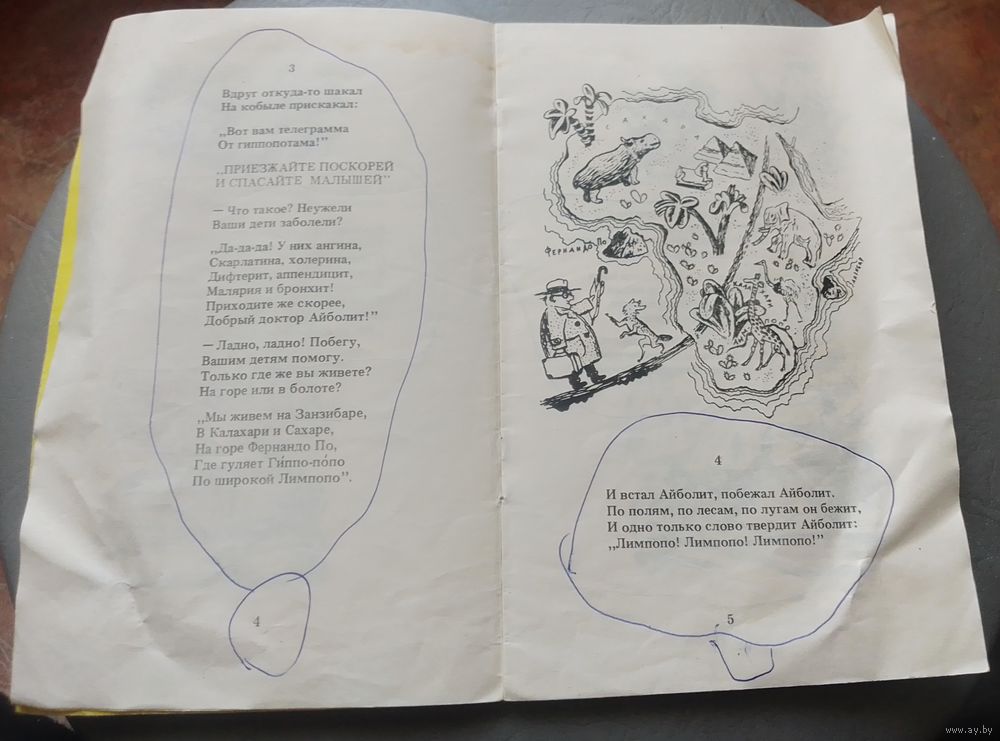 3
Вдруг откуда-то шакал
На кобыле прискакал:
„Вот вам телеграмма
От гиппопотама!”
„ПРИЕЗЖАЙТЕ ПОСКОРЕЙ
И СПАСАЙТЕ МАЛЫШЕЙ”
— Что такое? Неужели
Ваши дети заболели?
„Да-да-да! У них ангина,
Скарлатина, холерина,
Дифтерит, аппендицит,
Малярия и бронхит!
Приходите же скорее,
Добрый доктор Айболит!”
— Ладно, ладно! Побегу,
Вашим детям помогу.
Только где же вы живете?
На горе или в болоте?
„Мы живем на Занзибаре,
В Калахари и Сахаре,
На горе Фернандо По,
Где гуляет Ги́ппо-по́по
По широкой Лимпопо”.
4
САХАРА
ФЕРНАНДО ПО
4
И встал Айболит, побежал Айболит.
По полям, по лесам, по лугам он бежит,
И одно только слово твердит Айболит:
„Лимпопо! Лимпопо! Лимпопо!”
5
www.ay.by